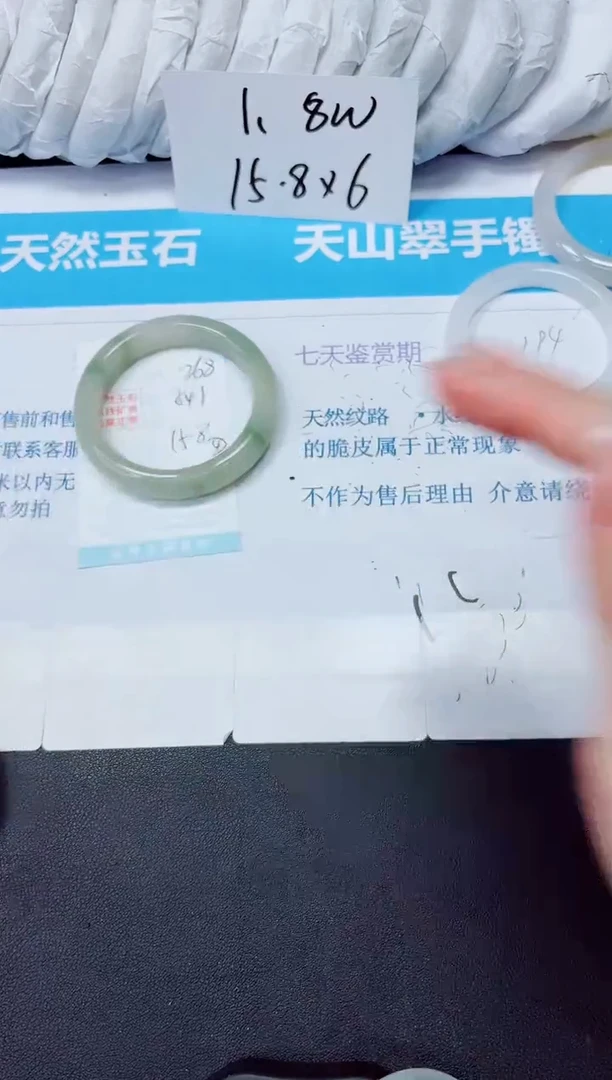 1、8W
15.8x6
天然玉石 天山翠手镯
七天鉴赏期
268
194
售前和售
天然纹路 · 水
联系客服
的脆皮属于正常现象
米以内无
不作为售后理由 介意请绕
意勿拍